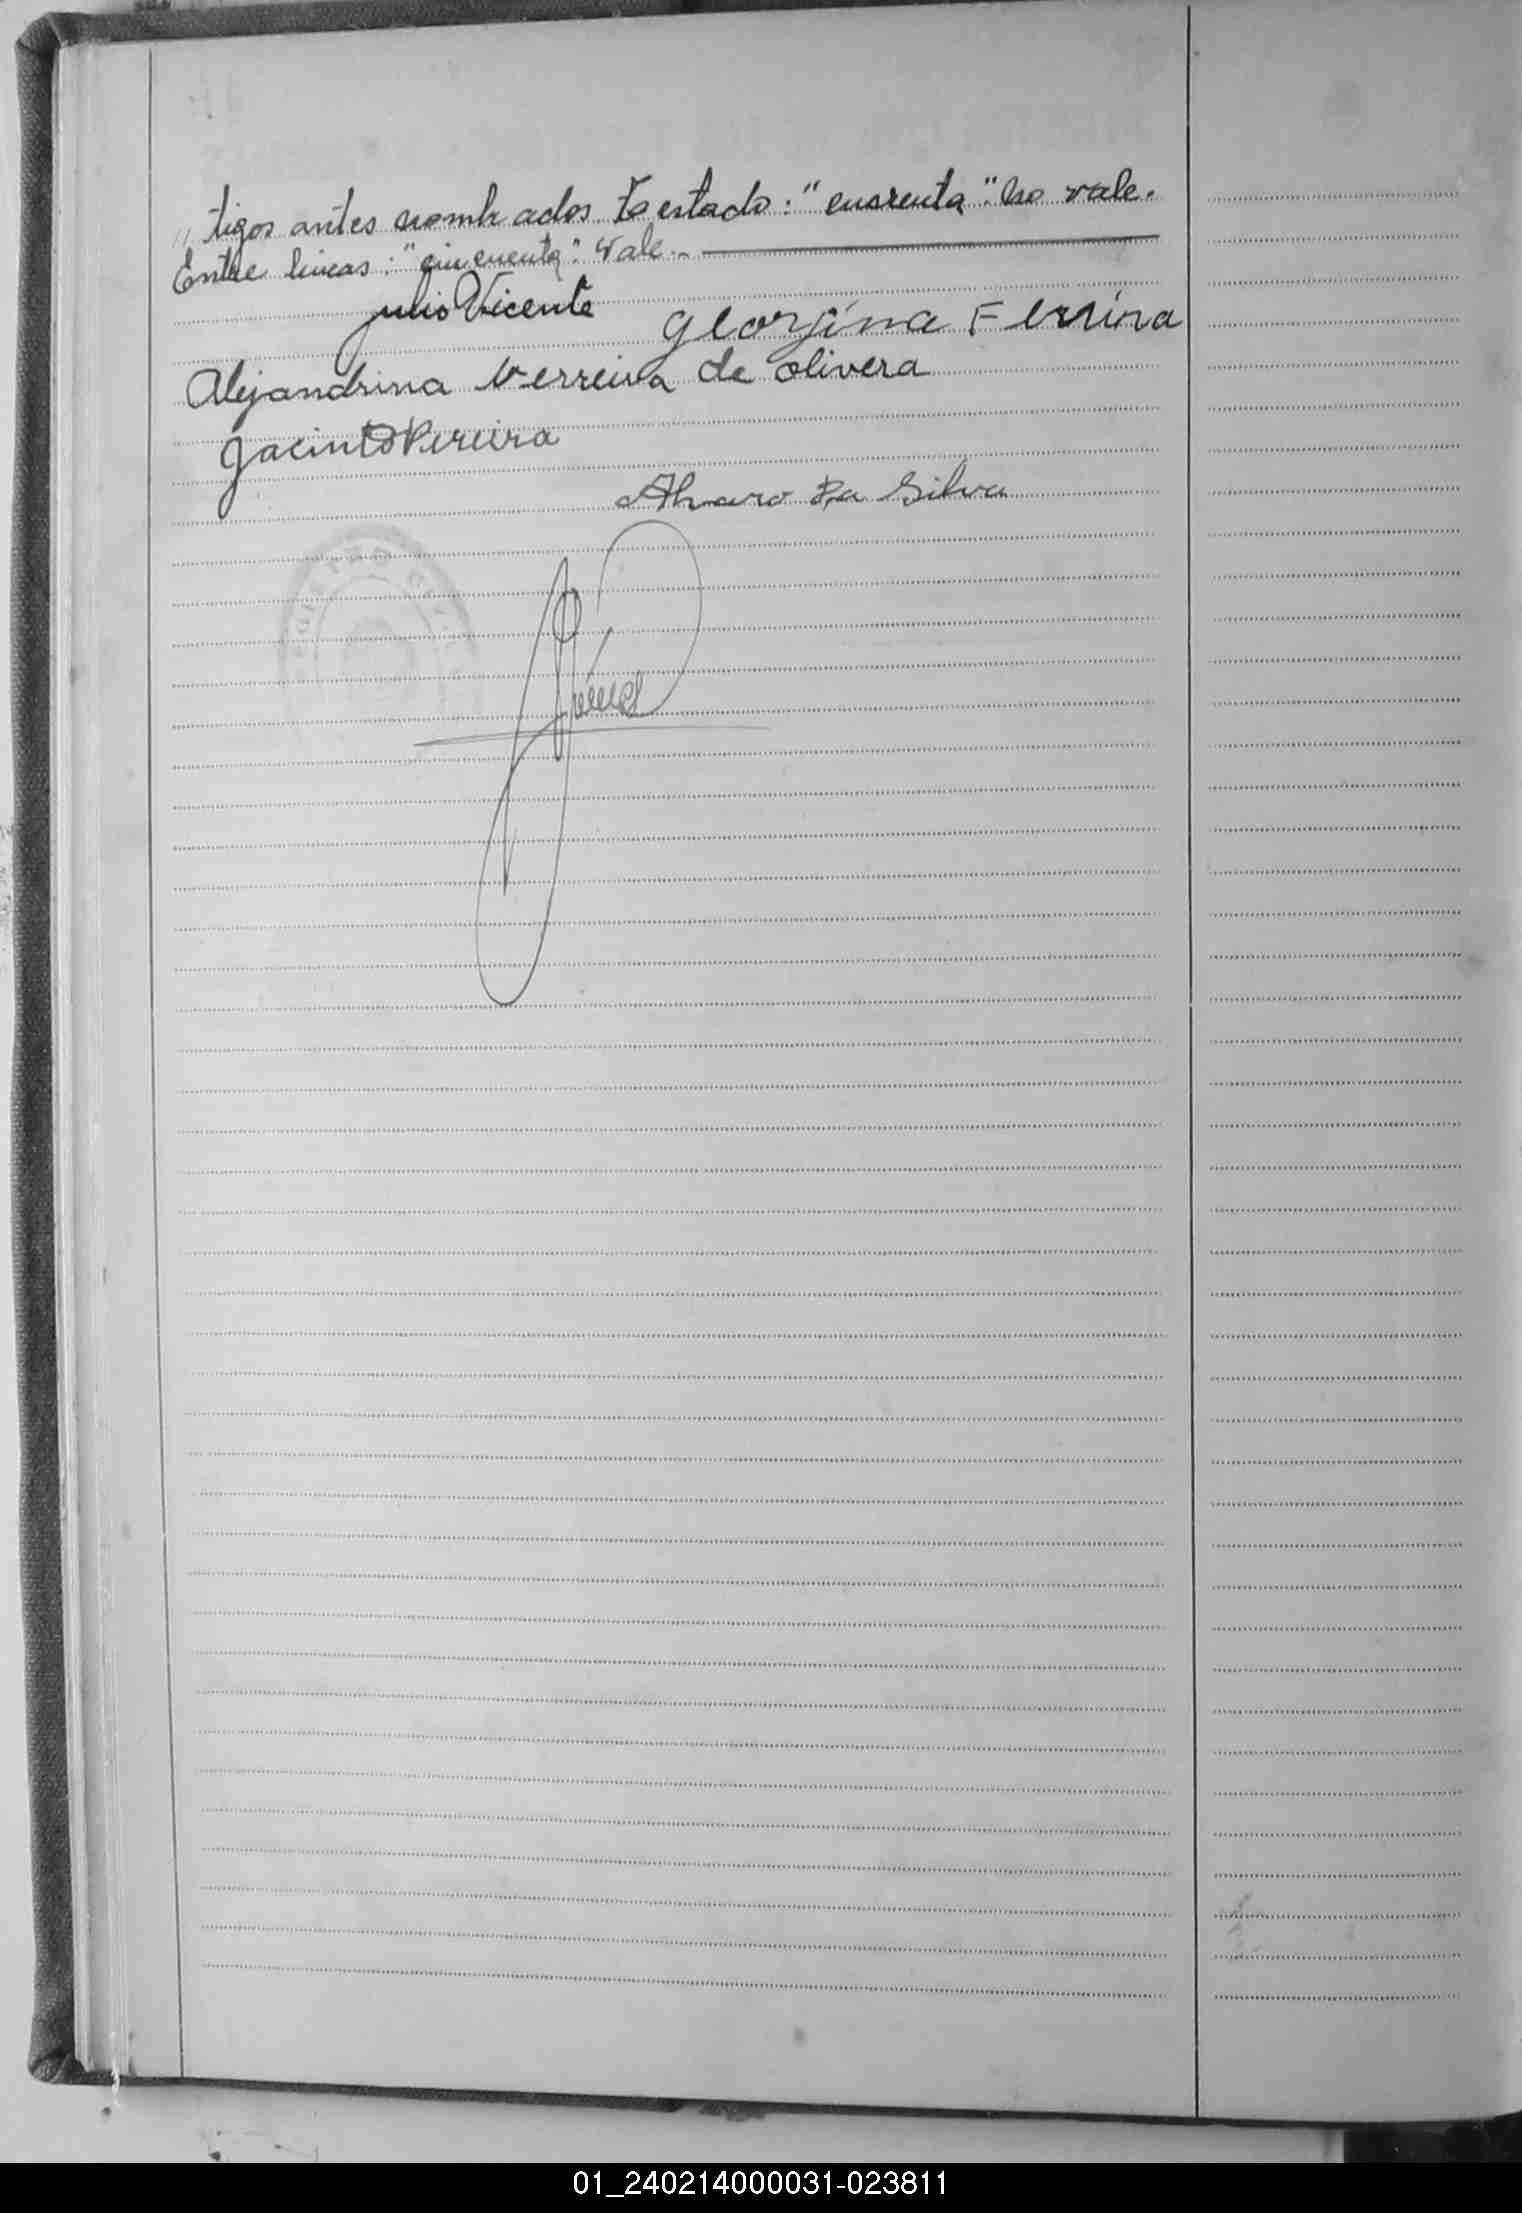 tigos antes nombrados Testado: "cuarenta": No vale.
Entre lineas: "cincuenta": Vale.-
Julio Vicente
Georjina Ferreira
Alejandrina Ferreira de Olivera
Jacinto Pereira
Alvaro Da Silva
01_240214000031-023811